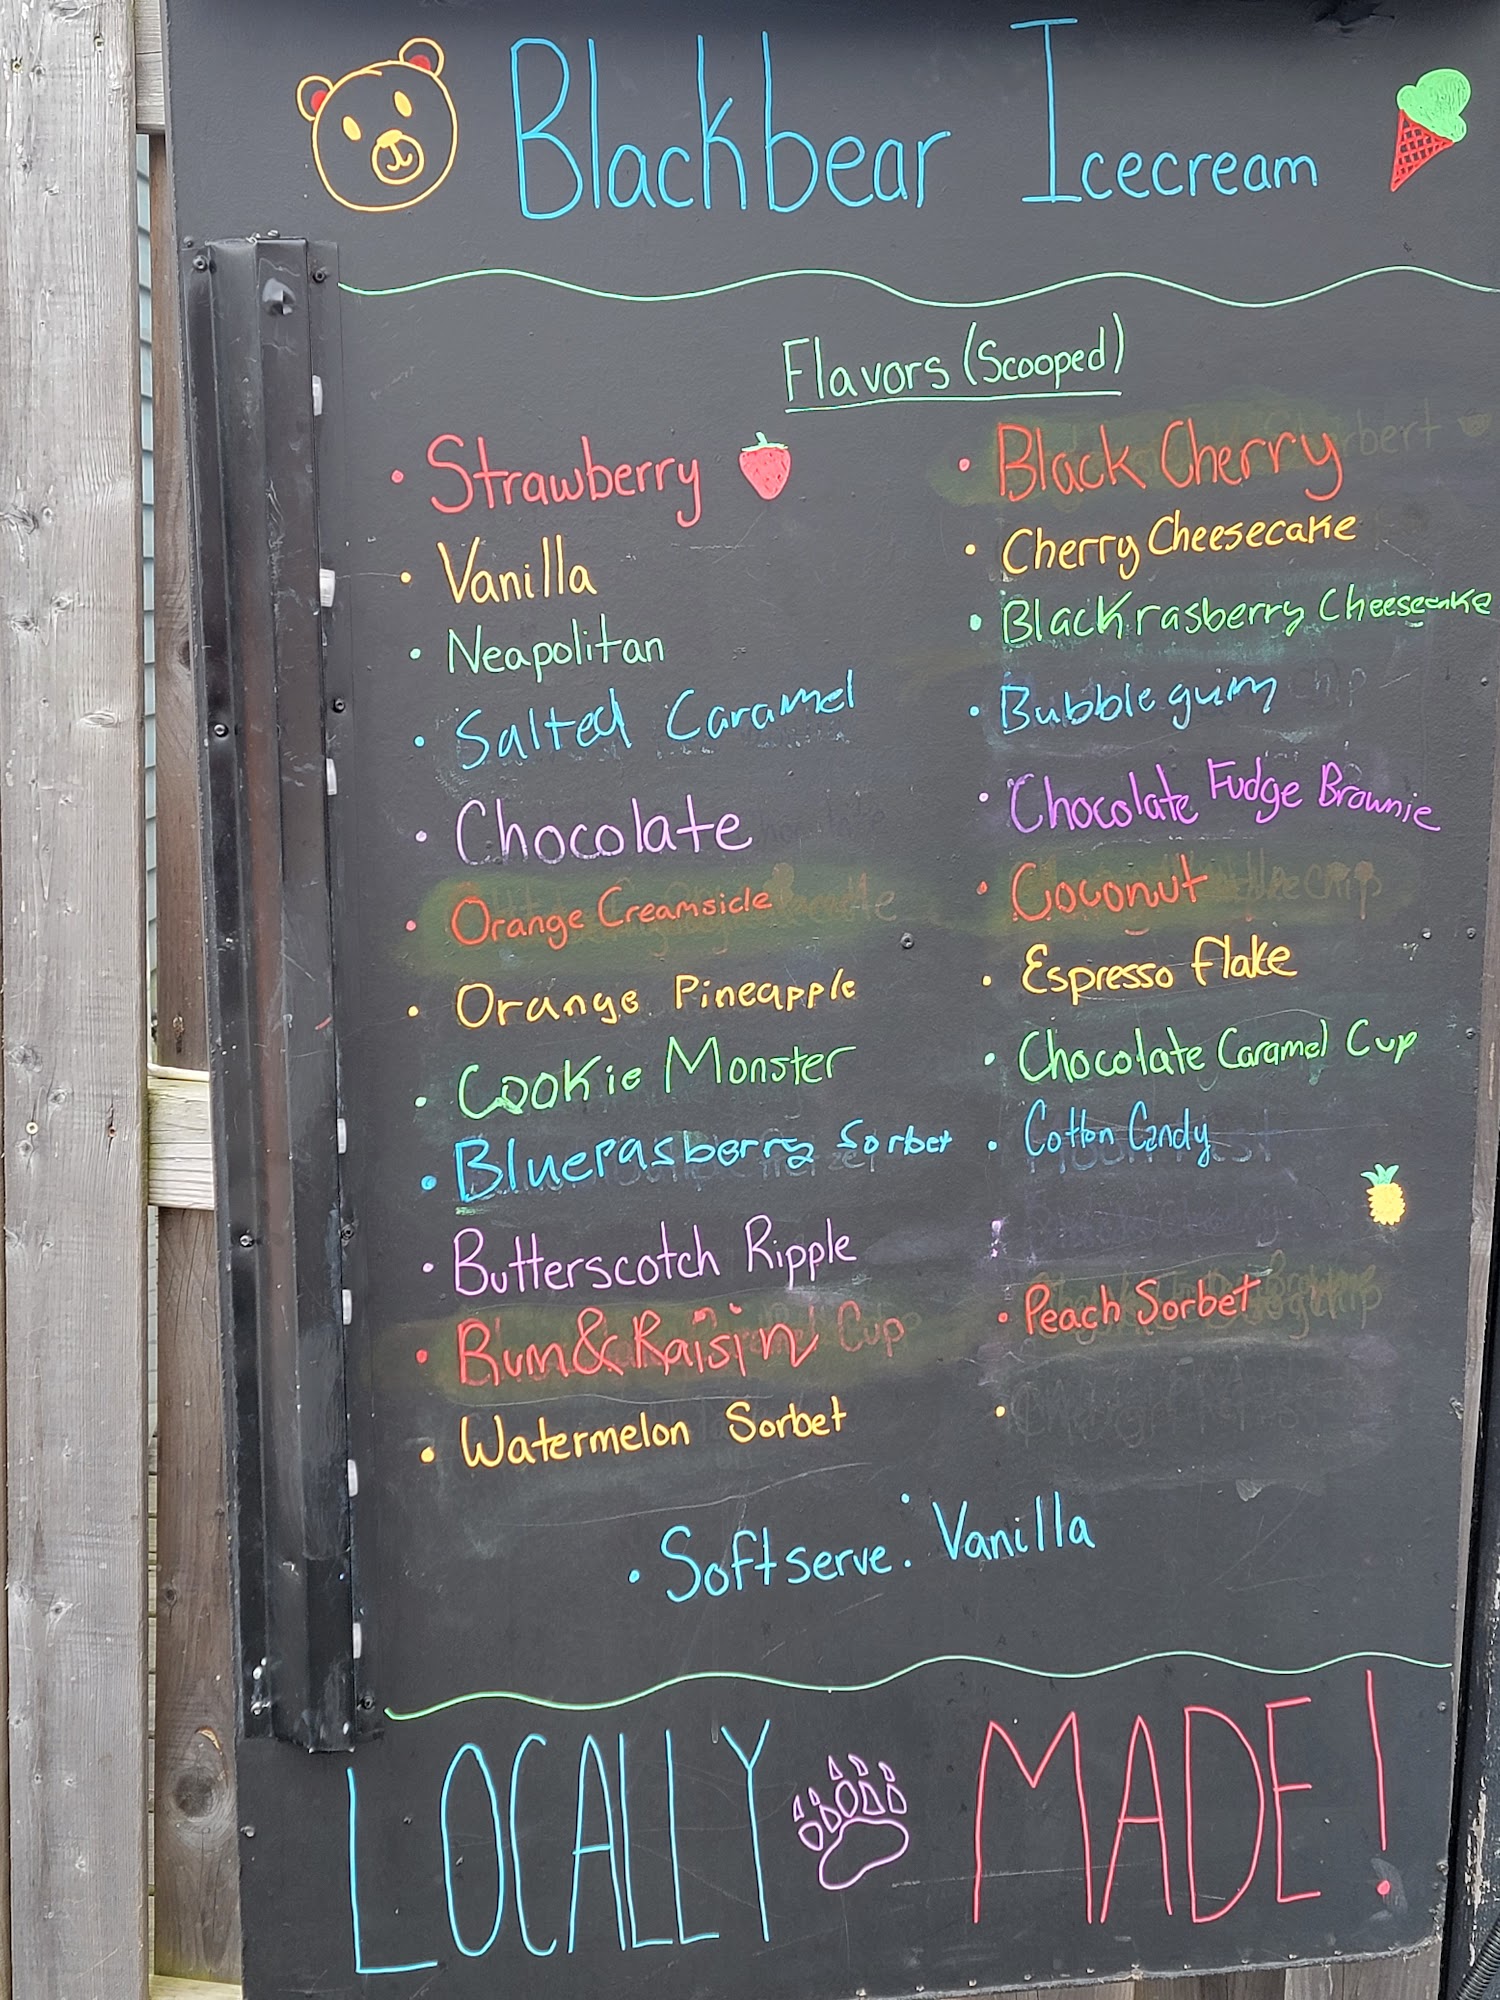 Blackbear Icecream
Flavors (Scooped)
• Strawberry
• Vanilla
• Neapolitan
• Salted Caramel
• Chocolate
• Orange Creamsicle
• Orange Pineapple
• Cookie Monster
• Bluerasberry Sorbet
• Butterscotch Ripple
• Rum & Raisin
• Watermelon Sorbet
• Black Cherry
• Cherry Cheesecake
• Black rasberry Cheesecake
• Bubblegum
• Chocolate Fudge Brownie
• Coconut
• Espresso Flake
• Chocolate Caramel Cup
• Cotton Candy
• Peach Sorbet
• Softserve: Vanilla
LOCALLY MADE!